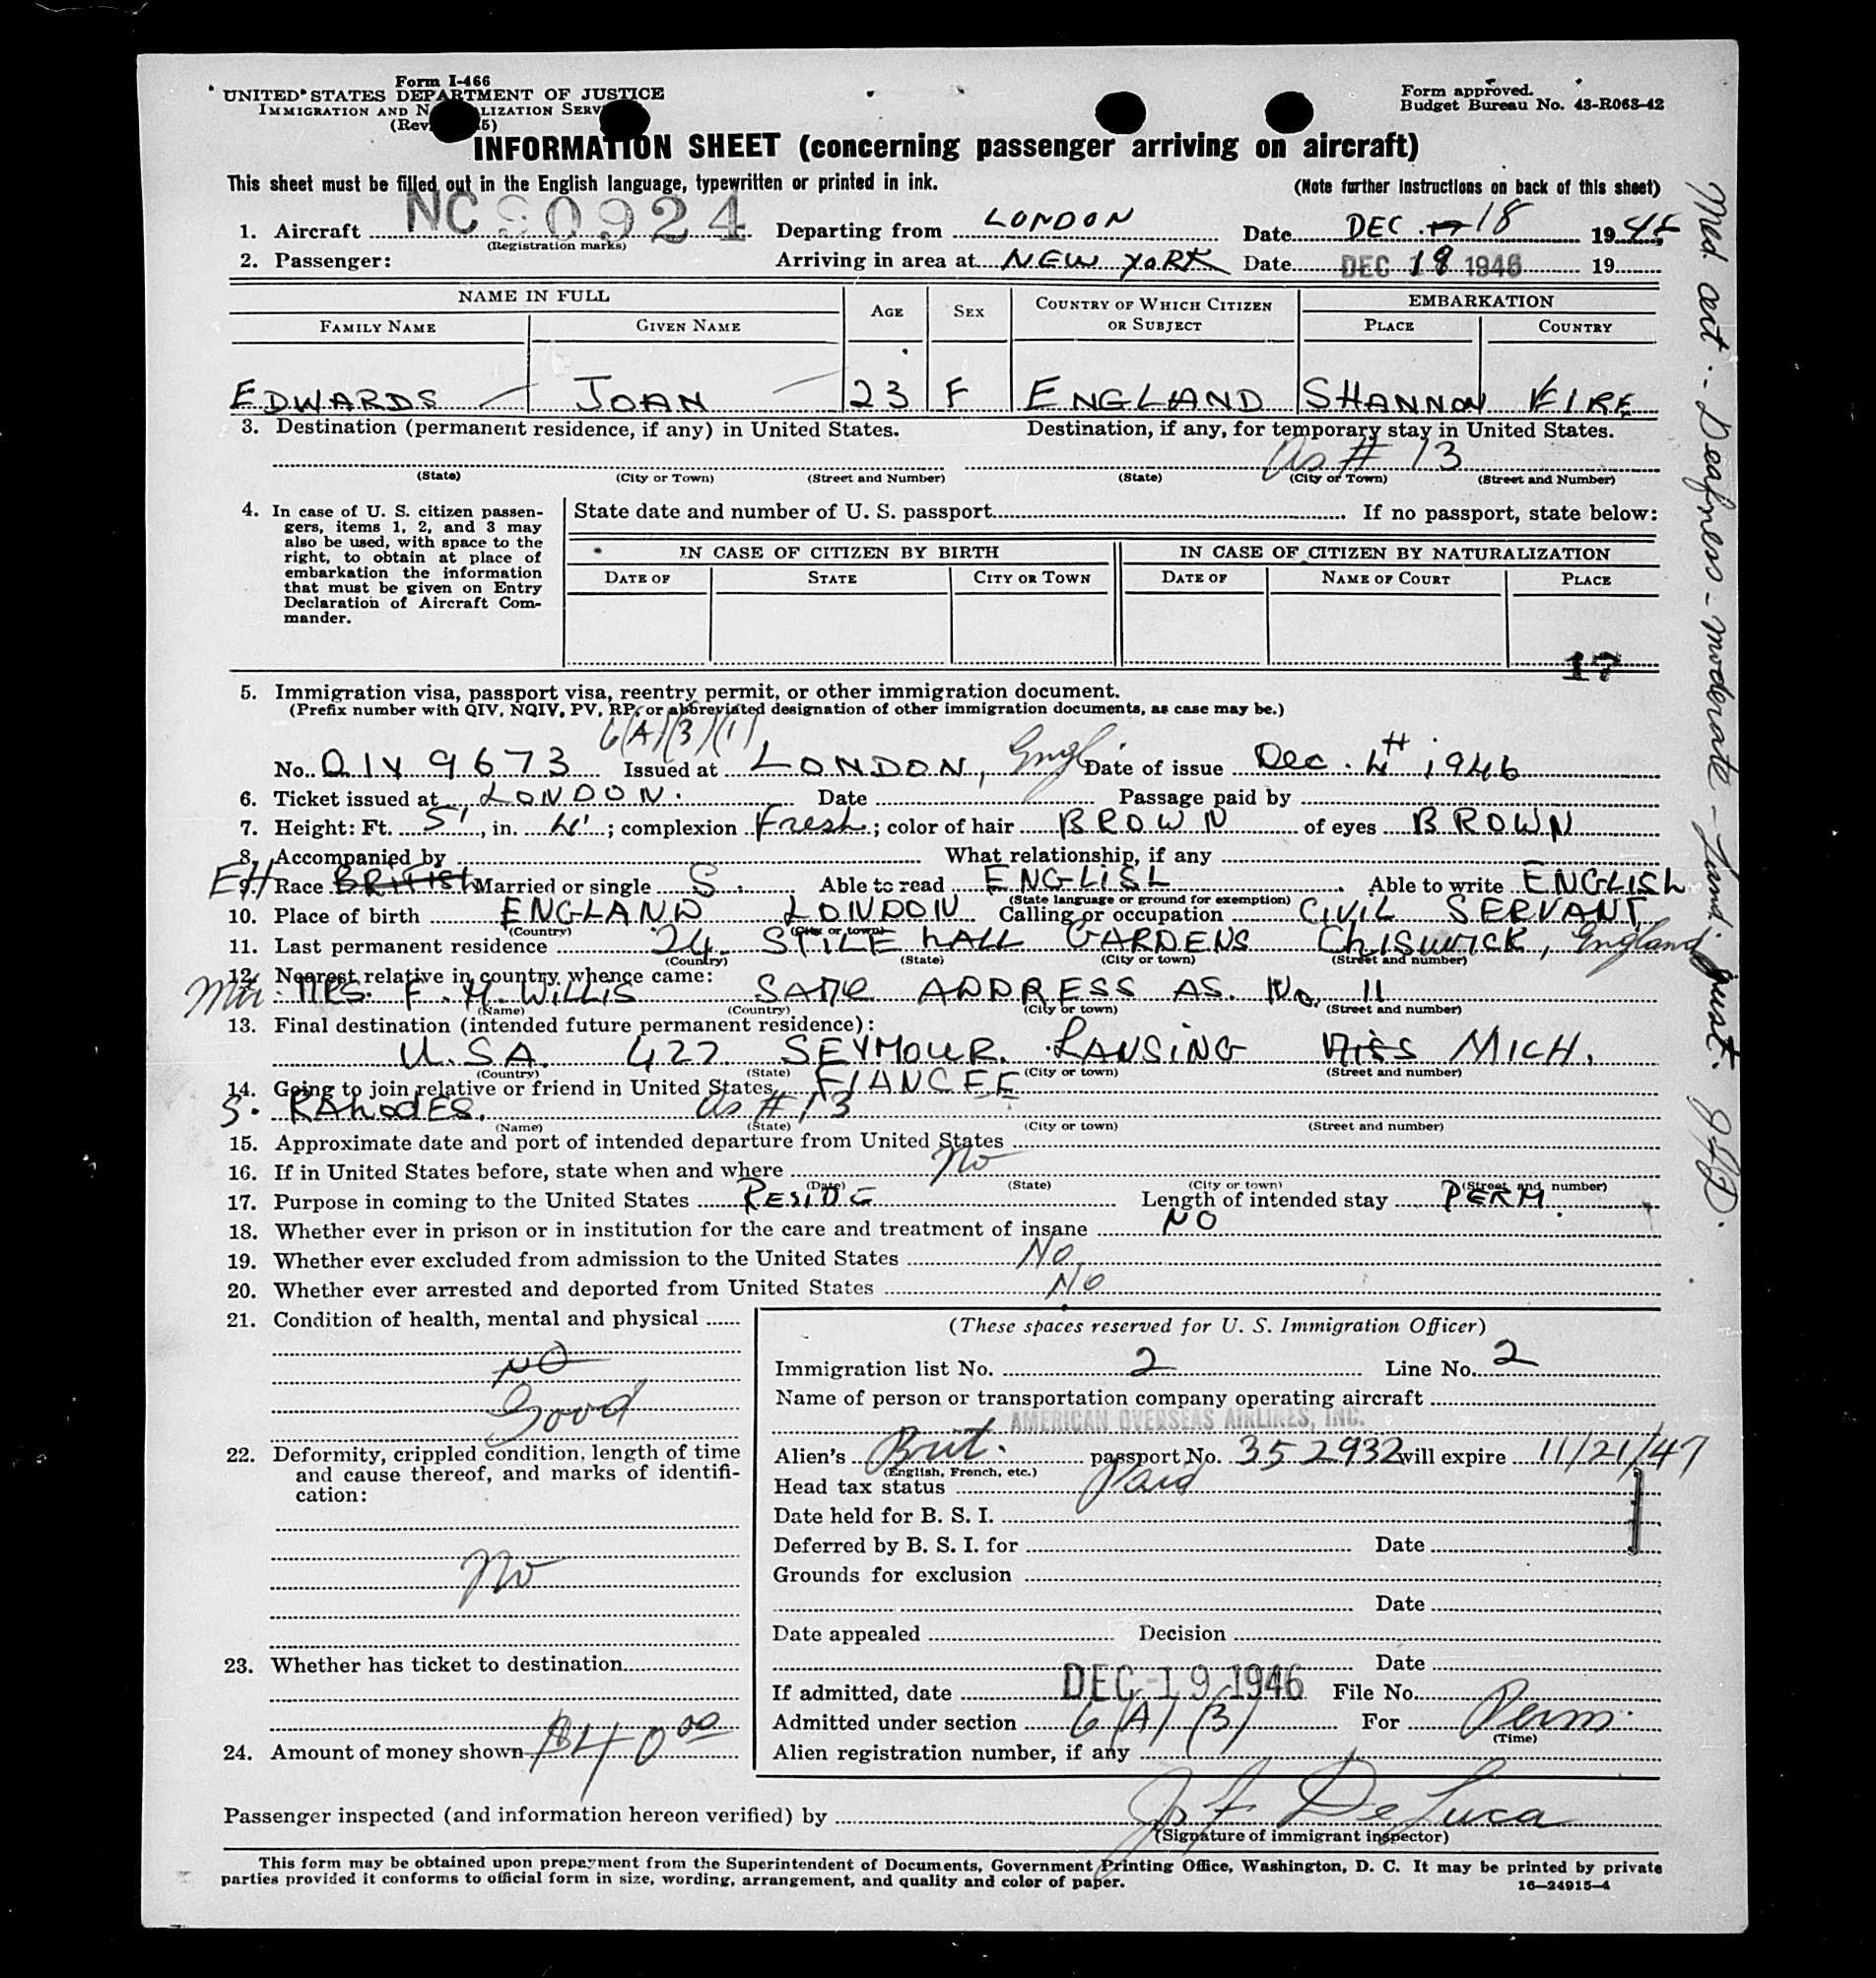 Form I-466
UNITED STATES DEPARTMENT OF JUSTICE
IMMIGRATION AND N LIZATION SERV
(Rev. 5)
Form approved.
Budget Bureau No. 43-R063-42
INFORMATION SHEET (concerning passenger arriving on aircraft)
This sheet must be filled out in the English language, typewritten or printed in ink.
(Note further instructions on back of this sheet)
1. Aircraft NC 90924 Departing from LONDON Date DEC. 18 19
(Registration marks)
2. Passenger: Arriving in area at NEW YORK Date DEC 18 1946 19
NAME IN FULL AGE SEX COUNTRY OF WHICH CITIZEN OR SUBJECT EMBARKATION
FAMILY NAME GIVEN NAME PLACE COUNTRY
EDWARDS JOAN 23 F ENGLAND SHANNON EIRE
3. Destination (permanent residence, if any) in United States. Destination, if any, for temporary stay in United States.
As # 13
(State) (City or Town) (Street and Number) (State) (City or Town) (Street and Number)
4. In case of U. S. citizen passen-
gers, items 1, 2, and 3 may
also be used, with space to the
right, to obtain at place of
embarkation the information
that must be given on Entry
Declaration of Aircraft Com-
mander.
State date and number of U. S. passport If no passport, state below:
IN CASE OF CITIZEN BY BIRTH IN CASE OF CITIZEN BY NATURALIZATION
DATE OF STATE CITY OR TOWN DATE OF NAME OF COURT PLACE
17
5. Immigration visa, passport visa, reentry permit, or other immigration document.
(Prefix number with QIV, NQIV, PV, RP, or abbreviated designation of other immigration documents, as case may be.)
6(A)(3)(1)
No. QIV 9673 Issued at LONDON, Engl Date of issue Dec. 4th 1946
6. Ticket issued at LONDON. Date Passage paid by
7. Height: Ft. 5', in. 4'; complexion Fresh; color of hair BROWN of eyes BROWN
8. Accompanied by What relationship, if any
EH 9. Race BRITISH Married or single S. Able to read ENGLISh Able to write ENGLISh
(State language or ground for exemption)
10. Place of birth ENGLAND LONDON Calling or occupation CIVIL SERVANT
(Country) (City or town)
11. Last permanent residence 24 STILE hALL GARDENS ChISWICK, England
(Country) (State) (City or town) (Street and number)
12. Nearest relative in country whence came:
MRS. F. H. WILLIS SAME ADDRESS AS. No. 11
(Name) (Country) (City or town) (Street and number)
13. Final destination (intended future permanent residence):
U.S.A. 427 SEYMOUR. LANSING MISS MICH.
(Country) (State) (City or town) (Street and number)
14. Going to join relative or friend in United States FIANCEE
S. RAhODES. As # 13
(Name) (State) (City or town) (Street and number)
15. Approximate date and port of intended departure from United States
16. If in United States before, state when and where No
(Date) (State) (City or town) (Street and number)
17. Purpose in coming to the United States RESIDE Length of intended stay PERM.
18. Whether ever in prison or in institution for the care and treatment of insane NO
19. Whether ever excluded from admission to the United States No
20. Whether ever arrested and deported from United States No
21. Condition of health, mental and physical
NO
Good
22. Deformity, crippled condition, length of time
and cause thereof, and marks of identifi-
cation:
No
23. Whether has ticket to destination
24. Amount of money shown $40 00
(These spaces reserved for U. S. Immigration Officer)
Immigration list No. 2 Line No. 2
Name of person or transportation company operating aircraft
AMERICAN OVERSEAS AIRLINES, INC.
Alien's Brit. passport No. 352932 will expire 11/21/47
(English, French, etc.)
Head tax status Paid
Date held for B. S. I.
Deferred by B. S. I. for Date
Grounds for exclusion
Date
Date appealed Decision
Date
If admitted, date DEC 19 1946 File No.
Admitted under section 6(A)(3) For Perm.
(Time)
Alien registration number, if any
Passenger inspected (and information hereon verified) by J. F. DeLuca
(Signature of immigrant inspector)
This form may be obtained upon prepayment from the Superintendent of Documents, Government Printing Office, Washington, D. C. It may be printed by private
parties provided it conforms to official form in size, wording, arrangement, and quality and color of paper.
16—24915-4
Med cert. - Deafness - moderate -